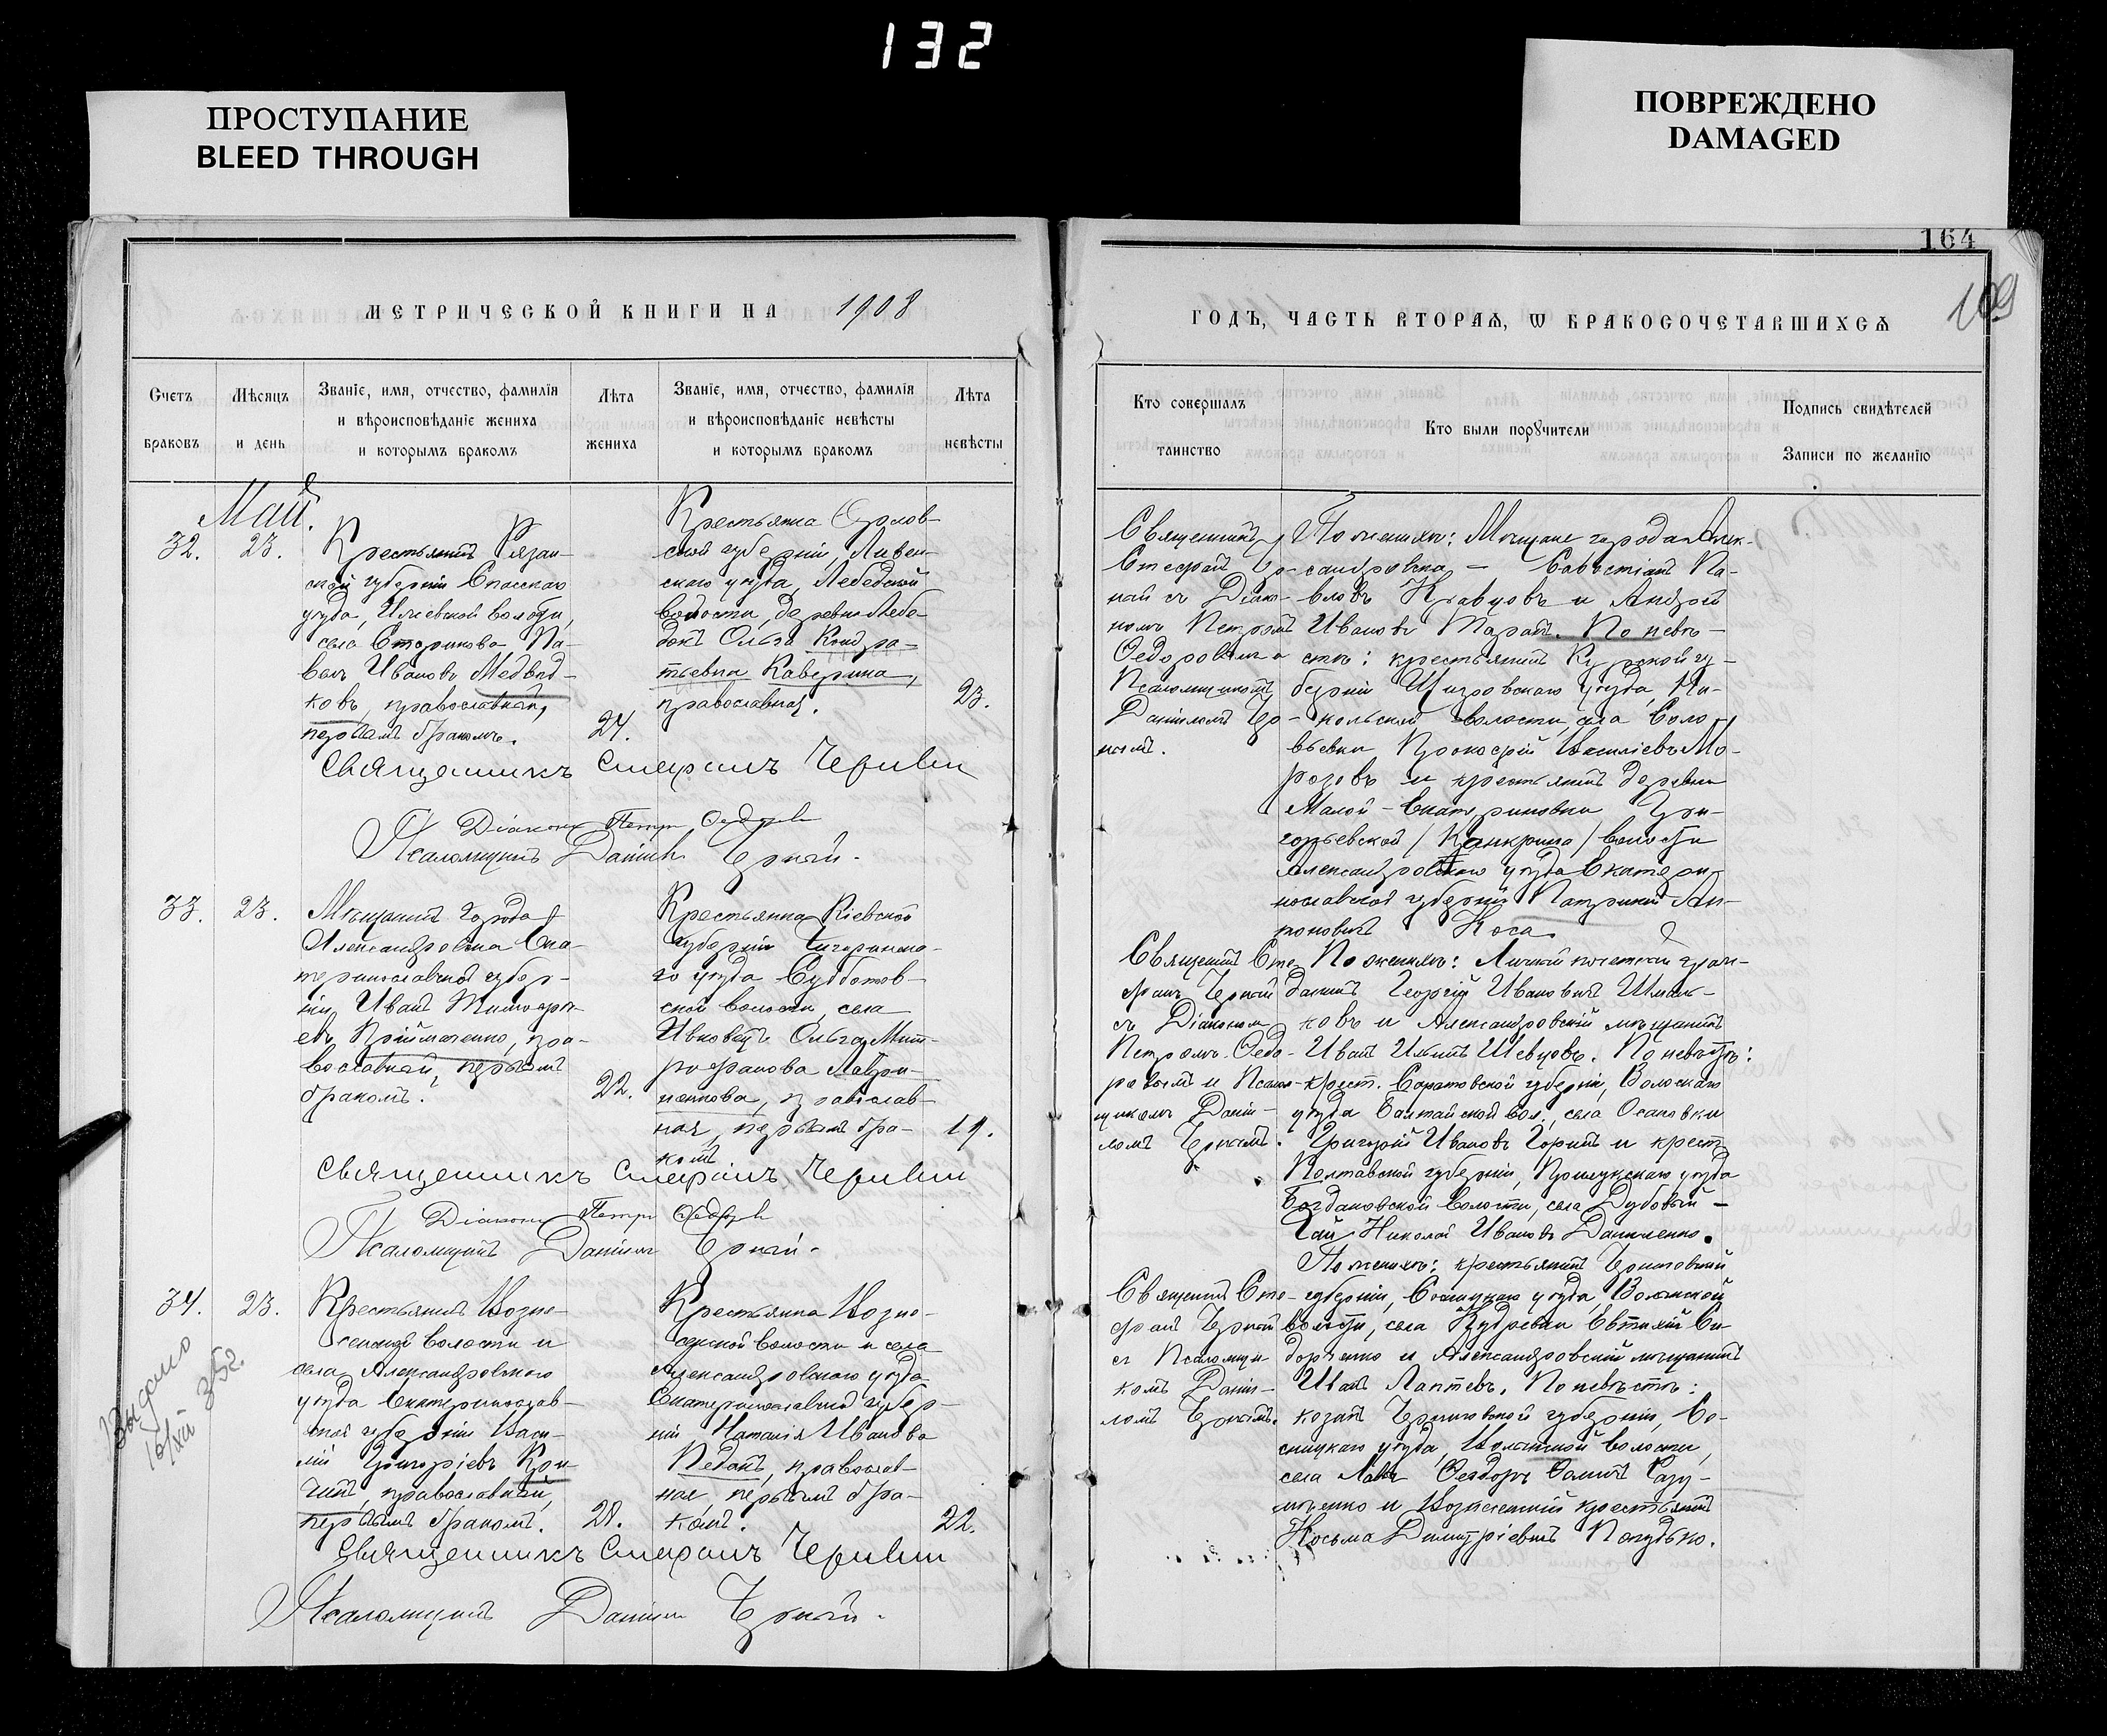 132
ПРОСТУПАНИЕ
BLEED THROUGH
ПОВРЕЖДЕНО
DAMAGED
164
109
МЕТРИЧЕСКОЙ КНИГИ НА 1908
Счетъ браковъ
Мѣсяцъ и день
Званіе, имя, отчество, фамилія
и вѣроисповѣданіе жениха
и которымъ бракомъ
Лѣта жениха
Званіе, имя, отчество, фамилія
и вѣроисповѣданіе невѣсты
и которымъ бракомъ
Лѣта невѣсты
Май.
32.
23.
Крестьянинъ Рязан-
ской губерніи Спасскаго
уѣзда, Ижевской волости,
села
Иванов Медвѣд-
ковъ, православный,
первымъ бракомъ.
24.
Крестьянка Орлов-
ской губерніи, Ливен-
скаго уѣзда, Лебедской
волости, деревни Лебе-
Ольга Кондра-
тьевна Каверина,
православная.
23.
Священникъ Стефанъ Черный
Діаконъ Петръ Федоровъ
Псаломщикъ Даніилъ Черный.
33.
23.
Мѣщанинъ города
Александровска Ека-
теринославской губер-
ніи Иванъ Тимофе-
евъ Прійматенко, пра-
вославный, первымъ
бракомъ.
22.
Крестьянка Кіевской
губерніи Чигиринска-
го уѣзда Субботов-
ской волости, села
Ивковецъ Ольга Мит-
рофанова Лаври-
ненкова, православ-
ная, первымъ бра-
комъ
19.
Священникъ Стефанъ Черный
Діаконъ Петръ Федоровъ
Псаломщикъ Даніилъ Черный.
34.
23.
Выдано
16/XII 352.
Крестьянинъ Возне-
сенской волости и
села Александровскаго
уѣзда Екатеринослав-
ской губерніи Васи-
лій Григоріевъ
православный,
первымъ бракомъ.
28.
Крестьянка Возне-
сенской волости и села
Александровскаго уѣзда
Екатеринославской губер-
ніи Наталія Иванова
Педанъ, православ-
ная, первымъ бра-
комъ.
22.
Священникъ Стефанъ Черный
Псаломщикъ Даніилъ Черный.
ГОДЪ, ЧАСТЬ ВТОРАЯ, Ѡ БРАКОСОЧЕТАВШИХСЯ
Кто совершалъ таинство
Кто были порꙋчители
Подпись свидѣтелей
Записи по желанію
Священникъ
Стефанъ Чер-
ный съ Діако-
номъ Петромъ
Федоровымъ и
Псаломщикомъ
Даніиломъ Чер-
нымъ.
По женихѣ: Мѣщане города Алек-
сандровска – Севастіанъ Па-
вловъ Кравцовъ и Андрей
Ивановъ Таранъ. По невѣ-
стѣ: крестьянинъ Курской гу-
берніи Щигровскаго уѣзда, Ни-
кольской волости, села Соло-
вьевки Прокофій Василіевъ Мо-
розовъ и крестьянинъ деревни
Малой-Екатериновки, Гри-
горьевской /Канкрина/ волости
Александровскаго уѣзда Екатери-
нославской губерніи
Коса.
Священникъ Сте-
фанъ Черный
съ Діакономъ
Петромъ Федо-
ровымъ и Псалом-
щикомъ Даніи-
ломъ Чернымъ.
По женихѣ: Личный почетный граж-
данинъ Георгій Ивановичъ Шмат-
ковъ и Александровскій мѣщанинъ
Иванъ Ильинъ Шевцовъ. По невѣстѣ:
крест. Саратовской губерніи, Вольскаго
уѣзда Балтайской вол., села Осановки
Григорій Ивановъ Горинъ и крест.
Полтавской губерніи, Прилукскаго уѣзда
Богдановской волости, села Дубовый-
Гай Николай Ивановъ Даниленко.
Священникъ Сте-
фанъ Черный
съ Псаломщи-
комъ Даніи-
ломъ Чернымъ.
По женихѣ: крестьянинъ Черниговской
губерніи, Сосницкаго уѣзда, Волынской
волости, села Кудровки Евтихій Си-
доренко и Александровскій мѣщанинъ
Иванъ Лаптевъ. По невѣстѣ:
козакъ Черниговской губерніи, Со-
сницкаго уѣзда, Волынской волости,
села
и Вознесенскій крестьянинъ
Косьма Димитріевичъ